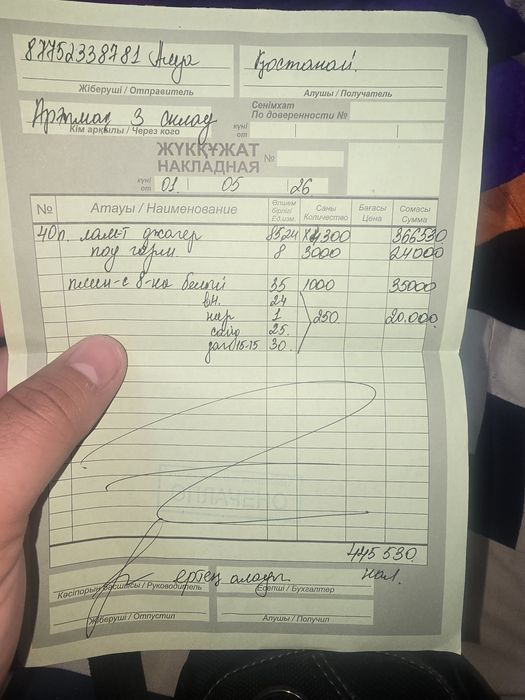 87752338781 Алуа
Қостанай.
Жіберуші / Отправитель
Алушы / Получатель
Арғымақ 3 склад
Сенімхат
По доверенности №
Кім арқылы / Через кого
күні
от
ЖҮКҚҰЖАТ
НАКЛАДНАЯ
№
күні
от
01. 05 26
№ Атауы / Наименование Өлшем бірлігі Ед.изм. Саны Количество Бағасы Цена Сомасы Сумма
40п. лам-т джагер 85,24 х4300 366530
под герм. 8 3000 24000
плин-с 8-ка белый 35 1000 35000
вн. 24
нар 1 250. 20.000.
соед 25.
заг 15-15 30.
ОПЛАЧЕНО
445 530.
ертең алады нал.
Кәсіпорын басшысы / Руководитель
Есепші / Бухгалтер
Жіберуші / Отпустил
Алушы / Получил